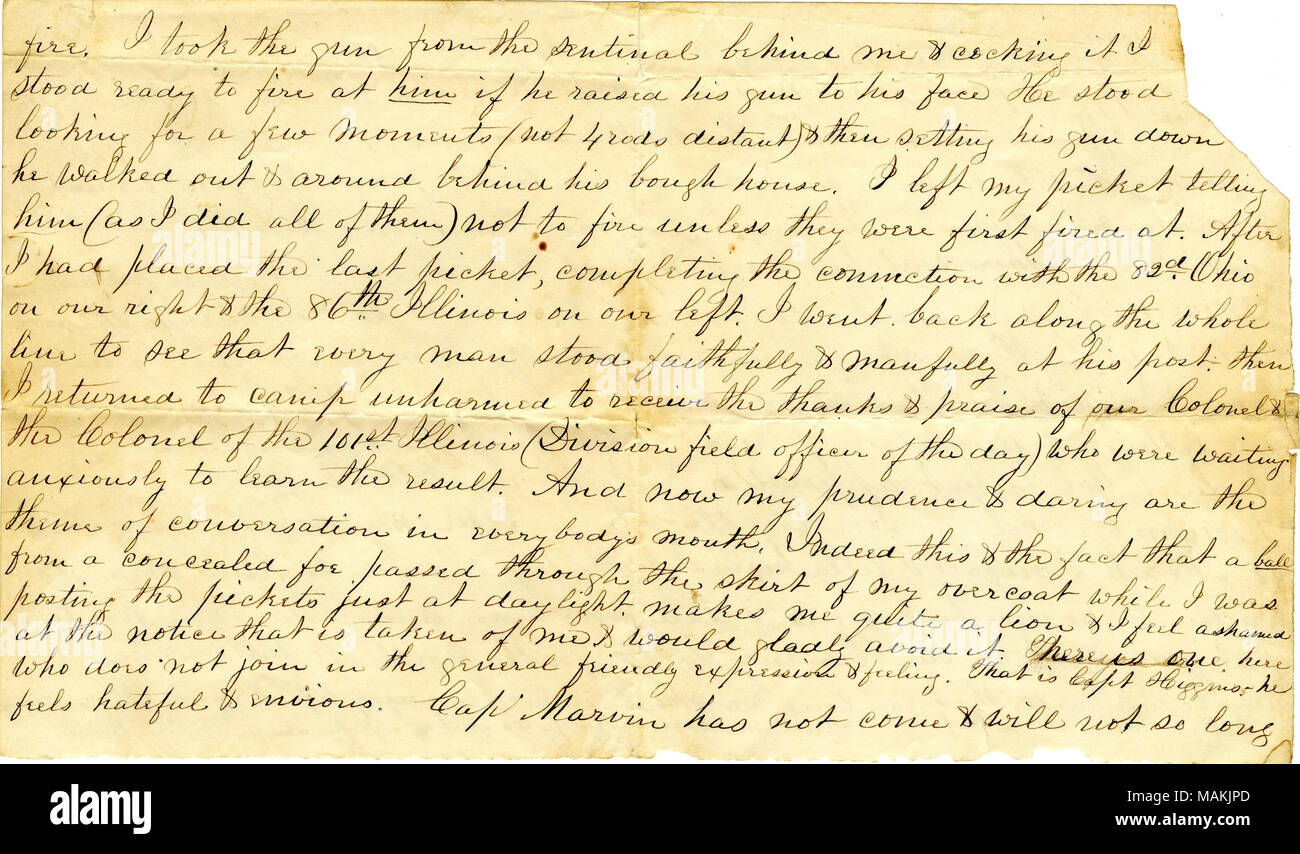 fire. I took the gun from the sentinal behind me & cocking it I
stood ready to fire at him if he raised his gun to his face He stood
looking for a few moments (not 4 rods distant) & then setting his gun down
he walked out & around behind his bough house. I left my picket telling
him (as I did all of them) not to fire unless they were first fired at. After
I had placed the last picket, completing the connection with the 82d. Ohio
on our right & the 86th Illinois on our left. I went back along the whole
line to see that every man stood faithfully & manfully at his post. then
I returned to camp unharmed to receive the thanks & praise of our Colonel &
the Colonel of the 101st Illinois (Division field officer of the day) who were waiting
anxiously to learn the result. And now my prudence & daring are the
theme of conversation in everybodys mouth. Indeed this & the fact that a ball
from a concealed foe passed through the skirt of my overcoat while I was
posting the pickets just at daylight. makes me quite a lion & I feel ashamed
at the notice that is taken of me & would gladly avoid it. There is one here
who does not join in the general friendly expression & feeling. That is Capt Higgins- he
feels hateful & envious. Cap Marvin has not come & will not so long
alamy
Image ID: MAKJPD
www.alamy.com